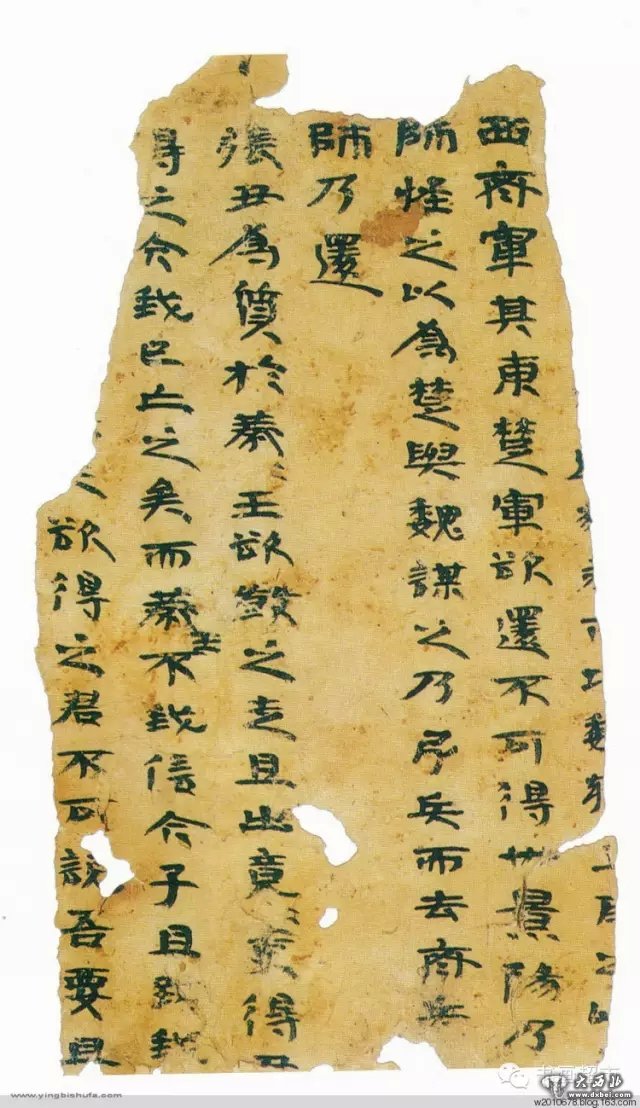 西齊軍其東楚軍欲還不可得也景陽乃
師怪之以為楚與魏謀之乃引兵而去齊兵
師乃還
張丑為質於燕〻王欲殺之走且出竟〻吏得丑
得之今我已亡之矣而燕王不我信今子且致我
欲得之君不可說吾要且
www.yingbishufa.com
大西北
www.dxbei.com
w2010678.blog.163.com